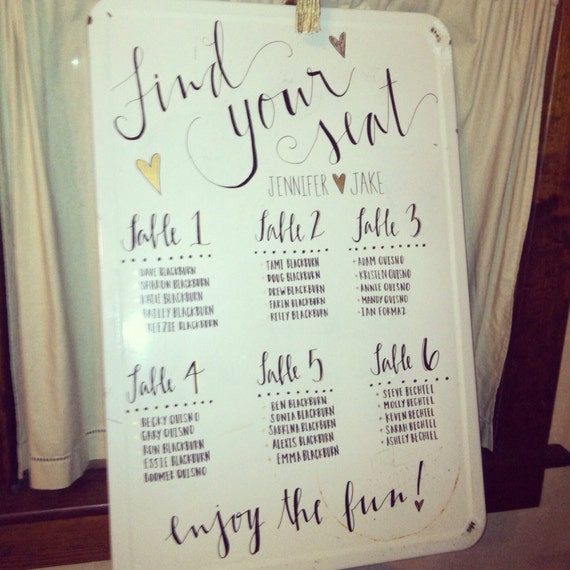 find
your
seat
JENNIFER JAKE
Table 1
DAVE BLACKBURN
SHARRON BLACKBURN
KATIE BLACKBURN
BAILEY BLACKBURN
KEEZIE BLACKBURN
Table 2
TAMI BLACKBURN
DOUG BLACKBURN
DREW BLACKBURN
TARIN BLACKBURN
KELLY BLACKBURN
Table 3
ADAM QUISNO
KRISTEN QUISNO
ANNIE QUISNO
MANDY QUISNO
IAN FORMAZ
Table 4
BECKY QUISNO
GARY QUISNO
RON BLACKBURN
ESSIE BLACKBURN
BOOMER QUISNO
Table 5
BEN BLACKBURN
SONIA BLACKBURN
SABRINA BLACKBURN
ALEXIS BLACKBURN
EMMA BLACKBURN
Table 6
STEVE BECHTEL
MOLLY BECHTEL
KEVEN BECHTEL
SARAH BECHTEL
ASHLEY BECHTEL
enjoy the fun!